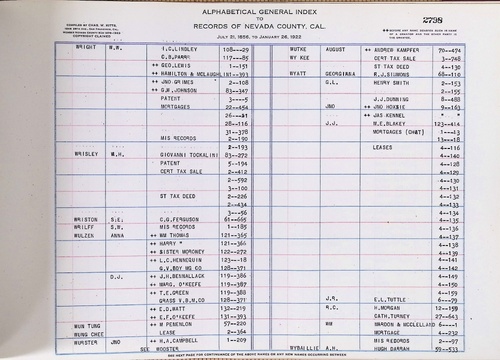 COMPILED BY CHAS. W. KITTS,
COPYRIGHT CLAIMED
ALPHABETICAL GENERAL INDEX
TO
RECORDS OF NEVADA COUNTY, CAL.
JULY 21, 1856, TO JANUARY 26, 1922
2798
WRIGHT W.W. I.C.LINDLEY 108---29 WUTKE AUGUST ++ ANDREW KAMPFER 70--474
C.B.PARRE 117---85 WY KEE CERT TAX SALE 3--748
++ GEO.LEWIS 1--151 ST TAX DEED 4--130
++ HAMILTON & MCLAUGHLIN 1--393 WYATT GEORGINNA ++ R.J.SIMMONS 68--110
++ JNO.GRIMES 2--189 G.L. HENRY SMITH 2--153
++ G.W.JOHNSON 83--347 2--155
PATENT 3---5 J.J.DUNNING 8--488
MORTGAGES 22--454 JNO ++ JNO HOXIE 9--163
++ JAS KENNEL
28--116 J.J. W.E.BLAKEY 123--414
31--378 MORTGAGES (CHAT) 1---13
MIS RECORDS 2--190 13---18
2--193 LEASES 4--116
WRISLEY W.H. GIOVANNI TOCKALINI 83--272 4--140
PATENT 5--194 4--128
CERT TAX SALE 2--412 4--129
2--592 4--130
3--100 4--131
ST TAX DEED 2--226 4--132
2--434 4--133
3---56 4--134
WRISTON S.E. C.G.FERGUSON 61--665 4--135
WRILFF S.W. MIS RECORDS 1--185 4--136
WULZEN ANNA ++ WM THOMAS 121--365 4--137
++ HARRY " 121--366 4--138
++ SISTER MORONEY 122--272 4--139
++ L.C.HENNEQUIN 123---18 4--141
G.V.BOY MG CO 128--371 4--142
D.J. ++ J.H.BENNALLACK 119--386 4--149
++ MARG. O'KEEFE 119--387 4--150
++ T.E.GREEN 119--388 4--159
GRASS V.B.M.CO 128--371 J.R. E.L.TUTTLE 6---79
++ E.D.WATT 132--219 R.C. H.MORGAN 12--159
++ E.F.O'KEEFE 131--393 CATH.TURNEY 27--643
WUN TUNG ++ M PENENLON 57--220 WM WARDON & MCCLELLAND 6----1
WUNG CHEE LEASE 4--364 MORTGAGE 6--232
WURSTER JNO ++ H.A.CAMPBELL 1--209 MIS RECORDS 2---97
SEE WOOSTER WYBAILLIE A.H. HUGH DARRAH 59--533
SEE NEXT PAGE FOR CONTINUANCE OF THE ABOVE NAMES OR ANY NEW NAMES OCCURRING BETWEEN